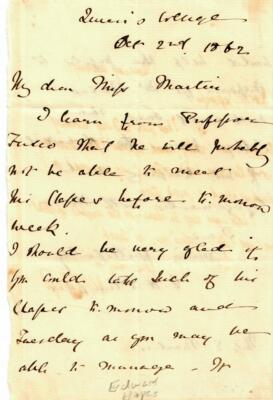 Queen's College
Oct 2nd 1862
My dear Miss Martin
I learn from Professor
that he will probably
not be able to meet
his Classes before to-morrow
week.
I should be very glad if
you could take such of his
Classes to-morrow and
Tuesday as you may be
able to manage -
Edward